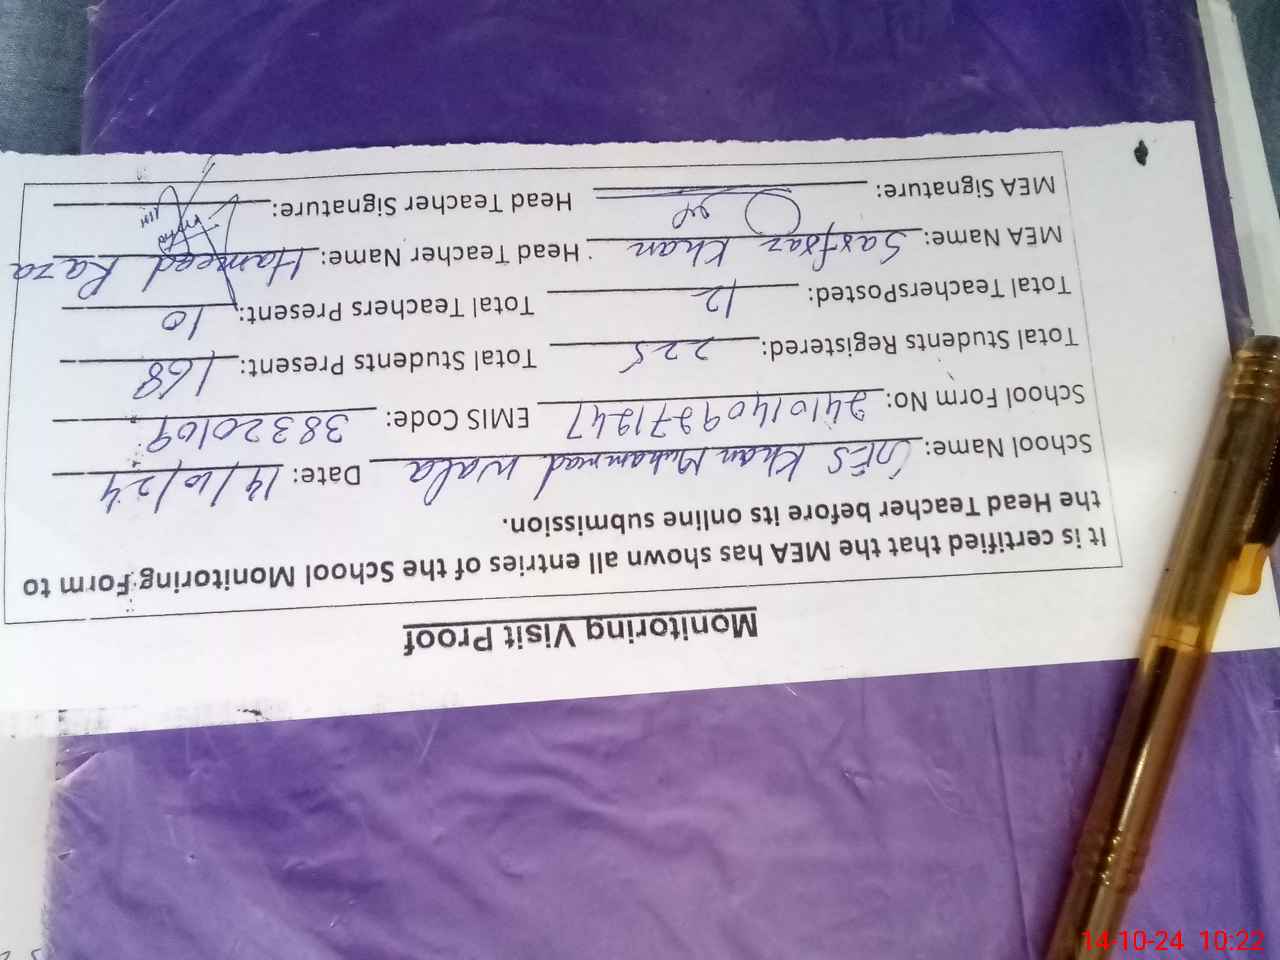 Monitoring Visit Proof
It is certified that the MEA has shown all entries of the School Monitoring Form to
the Head Teacher before its online submission.
School Name: GES Khan Muhammad Wala Date: 14/10/24
School Form No: EMIS Code: 38320109
Total Students Registered: 225 Total Students Present: 168
Total TeachersPosted: 12 Total Teachers Present: 10
MEA Name: Sarfraz Khan Head Teacher Name: Hameed Raza
MEA Signature: Head Teacher Signature:
14-10-24 10:22